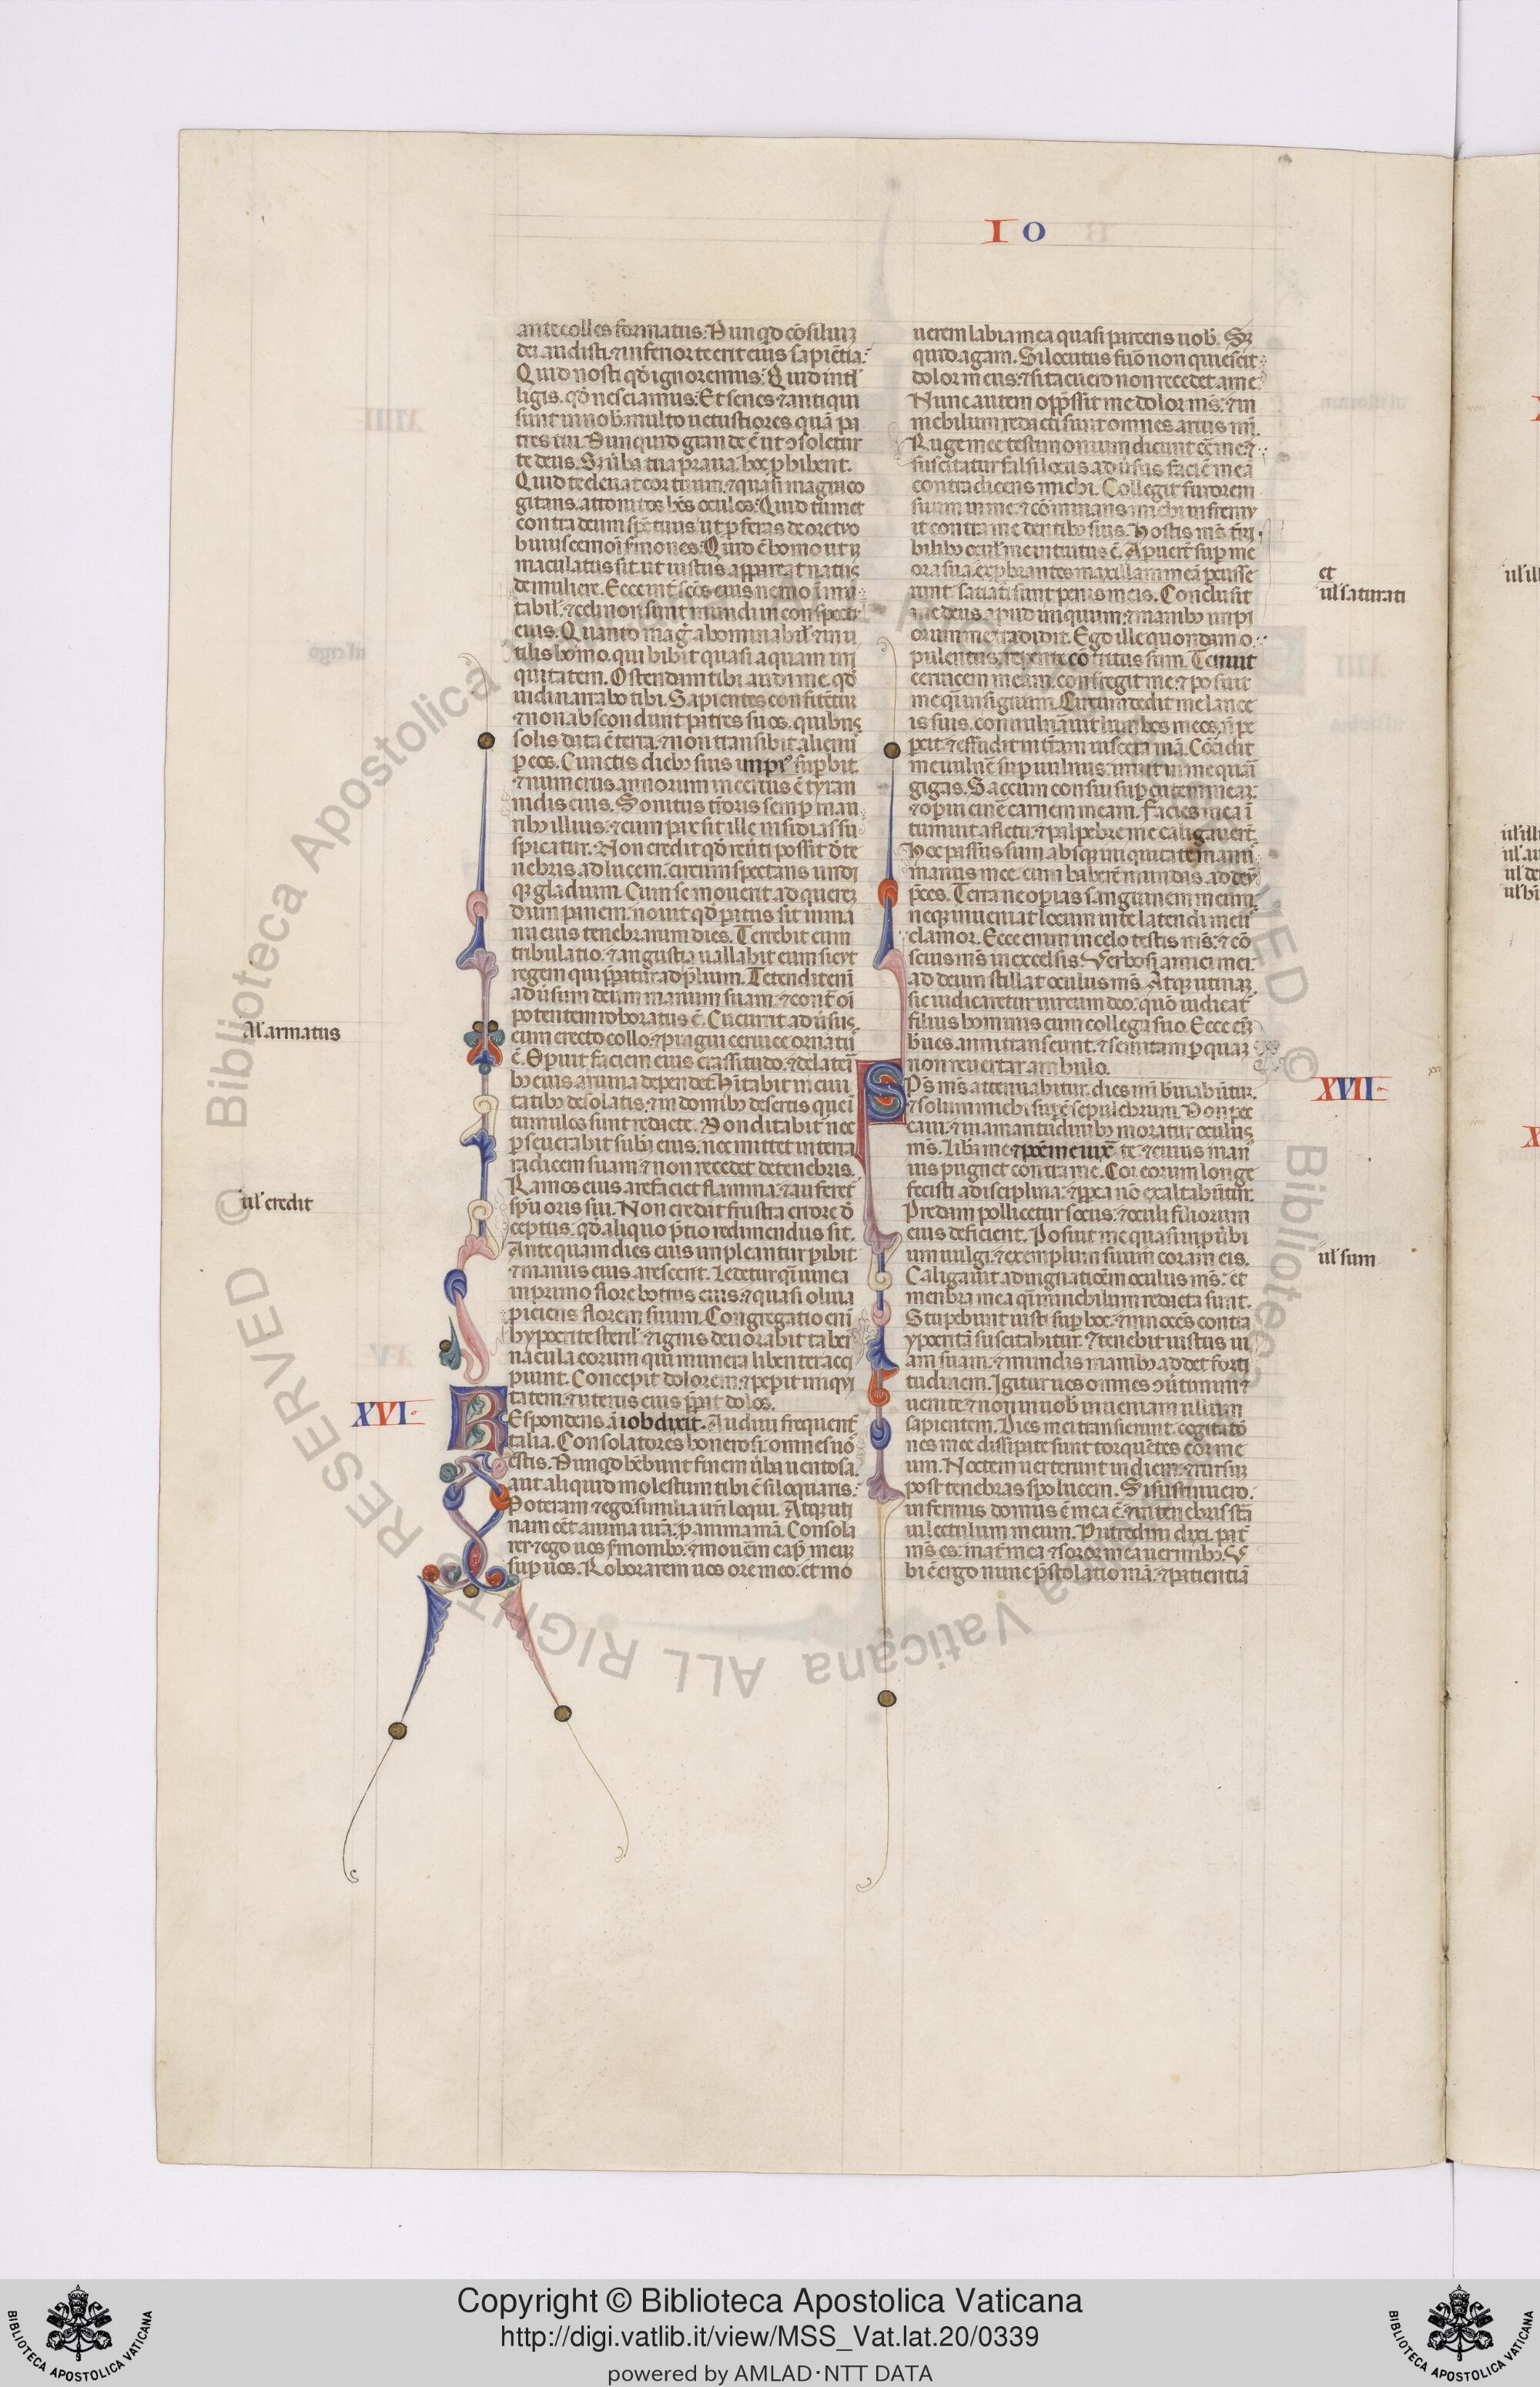 I O
ante colles formatus. Nunqd cõsiliuʒ
dei audisti. ⁊ inferior te erit eius sapiẽtia.
Quid nosti qđ ignoremus. Quid intl̃
ligis. qđ nesciamus. Et senes ⁊ antiqui
sunt in nob̃. multo uetustiores quã pa
tres tui. Nunquid grande ẽ ut ɔsoletur
te deus. Sʒ ũba tua praua. hoc ꝓhibent.
Quid te eleuat cor tuum. ⁊ quasi magna co
gitans. attonitos hẽs oculos. Quid tumet
contra deum spc̃ tuus. ut ꝓferas de ore tuo
huiuscemoi s̃mones. Quid ẽ homo ut in
maculatus sit. ut iustus appareat natus
de muliere. Ecce int̃ sc̃os eius nemo ĩmu
tabil̃. ⁊ celi non sunt mundi in conspectu
eius. Quanto mag̃ abominabil̃ ⁊ inu
tilis homo. qui bibit quasi aquam ini
quitatem. Ostendam tibi audi me. qđ
uidi narrabo tibi. Sapientes confitẽtur
⁊ non abscondunt patres suos. quibus
solis data ẽ terra. ⁊ non transibit alien
ꝑ eos. Cunctis diebꝫ suis impi⁹ suꝑbit.
⁊ num̃us annorum incertus ẽ tyran
nidis eius. Sonitus t̃roris semꝑ in au
ribꝫ illius. ⁊ cum pax sit ille insidias su
spicatur. Non credit qđ reũti possit d̃ te
nebris. ad lucem. circum spectans undi
qꝫ gladium. Cum se mouerit ad querẽ
dum panem. nouit qđ paratus sit in ma
nu eius tenebrarum dies. Terrebit eum
tribulatio. ⁊ angustia uallabit eum sicut
regem qui p̃paratur ad p̃lium. Tetendit eni
ad ũsum deum manum suam. ⁊ cont̃ oi
potentem roboratus ẽ. Cucurrit adũsus
eum erecto collo. ⁊ pingui ceruice ornatus
ẽ. Oꝑuit faciem eius crassitudo. ⁊ de laterĩ
bꝫ eius aruina dependet. Hitabit in ciui
tatibꝫ desolatis. ⁊ in domibꝫ desertis que ĩ
tumulos sunt redacte. Non ditabit nec
ꝑseuerabit sub̃a eius. nec mittet in terra
radicem suam ⁊ non recedet de tenebris.
Ramos eius arefaciet flamma. ⁊ auferet̃
sp̃u oris sui. Non credat frustra errore d̃
ceptus. qđ aliquo p̃tio redimendus sit.
Ante quam dies eius impleantur ꝑibit
⁊ manus eius arescent. Ledetur q̃i uinea
in primo flore botrus eius. ⁊ quasi oliua
ꝓiciens florem suum. Congregatio eni
hypocrite steril̃. ⁊ ignis deuorabit taber
nacula eorum qui munera libenter acci
piunt. Concepit dolorem. ⁊ peperit iniqui
tatem. ⁊ uterus eius p̃parat dolos.
REspondens ã iob dixit. Audiui frequent̃
talia. Consolatores honerosi. omnes uos
estis. Nunqd hẽbunt finem ũba uentosa.
aut aliquid molestum tibi ẽ si loquaris.
Poteram ⁊ ego similia ur̃i loqui. Atqꝫ uti
nam eẽt anima ur̃a. ꝑ anima mea. Consola
rer ⁊ ego uos s̃monibꝫ. ⁊ mouerẽ cap̃ meuʒ
suꝑ uos. Roborarem uos ore meo. et mo
uerem labia mea quasi parcens uob̃. Sʒ
quid agam. Si locutus fuero non quiescet
dolor meus. ⁊ si tacuero non recedet a me.
Nunc autem opp̃ssit me dolor ms̃. ⁊ in
nichilum redacti sunt omnes artus mei.
Ruge mee testimonium dicunt cõ me. ⁊
suscitatur falsilocus adũsus faciẽ meã
contradicens michi. Collegit furorem
suum in me. ⁊ cõminans michi infremu
it contra me dentibꝫ suis. hostis ms̃ t̃ri
bilibꝫ ocul̃ me intuitus ẽ. Aꝑuer̃t suꝑ me
ora sua. exp̃brantes maxillam meã ꝑcusse
runt. satiati sunt penis meis. Conclusit
me deus apud iniquum. ⁊ manibꝫ impi
orum me tradidit. Ego ille quondam o
pulentus. repente cõtritus sum. Tenuit
ceruicem meam. confregit me. ⁊ posuit
me q̃i in signum. Circumdedit me lance
is suis. conuulnauit lumbos meos. ñ pe
ꝑcit. ⁊ effudit in t̃ram uiscera mea. Cõcidit
me uulnẽ suꝑ uulnus. irruit in me quasi
gigas. Saccum consui suꝑ cutem meaʒ.
⁊ oꝑui cinẽ carnem meam. facies mea ĩ
tumuit a fletu. ⁊ palpebre mee caligauert̃.
Hec passus sum absqꝫ iniquitate manu
manus mee. cum haberẽ mundas. ad deʒ
p̃ces. Terra ne oꝑias sanguinem meum.
neqꝫ inueniat locum in te latendi meus
clamor. Ecce enim in celo testis ms̃. ⁊ cõ
scius ms̃ in excelsis. Verbosi amici mei.
ad deum stillat oculus ms̃. Atqꝫ utinaʒ
sic iudicaretur uir cum deo. quõ iudicat̃
filius hominis cum collega suo. Ecce eñ
b̃ues anni transeunt. ⁊ semitam ꝑ quaʒ
non reuertar ambulo.
SPs̃ ms̃ attenuabitur. dies mei b̃uiabũtur.
⁊ solum michi suꝑẽ sepulchrum. Non pec
caui. ⁊ in amaritudinibꝫ moratur oculus
ms̃. Lib̃a me ⁊ pone me iuxta te. ⁊ cuius man⁹
uis pugnet contra me. Cor eorum longe
fecisti a disciplina. ⁊ ꝓpt̃ea nõ exaltabũtur.
Predam pollicetur sociis. ⁊ oculi filiorum
eius deficient. Posuit me quasi in ꝓũbi
um uulgi. ⁊ exemplum suum coram eis.
Caligauit ad indignatioẽm oculus ms̃. et
menbra mea q̃i in nichilum redacta sunt.
Stupebunt iusti suꝑ hoc. ⁊ innocẽs contra
ypocritã suscitabitur. ⁊ tenebit iustus ui
am suam. ⁊ mundis manibꝫ addet forti
tudinem. Igitur uos omnes ɔũtimini ⁊
uenite. ⁊ non in uob̃ inueniam ullum
sapientem. Dies mei transierunt. cogitatio
nes mee dissipate sunt torquẽtes cor me
um. Noctem uerterunt in diem. ⁊ rursuʒ
post tenebras sp̃o lucem. Si sustinuero.
infernus domus mea ẽ. ⁊ in tenebris st̃ui
lectulum meum. Putredini dixi. pat̃
ms̃ es. mat̃ mea ⁊ soror mea uermibꝫ. V
bi ẽ ergo nunc p̃stolatio mea. ⁊ patientiã
Al̃ armatus
ul̃ credit
XVI
et
ul̃ saturati
XVII
ul̃ sum
Copyright © Biblioteca Apostolica Vaticana
http://digi.vatlib.it/view/MSS_Vat.lat.20/0339
powered by AMLAD·NTT DATA
© Biblioteca Apostolica Vaticana ALL RIGHTS RESERVED
BIBLIOTECA APOSTOLICA VATICANA
BIBLIOTECA APOSTOLICA VATICANA